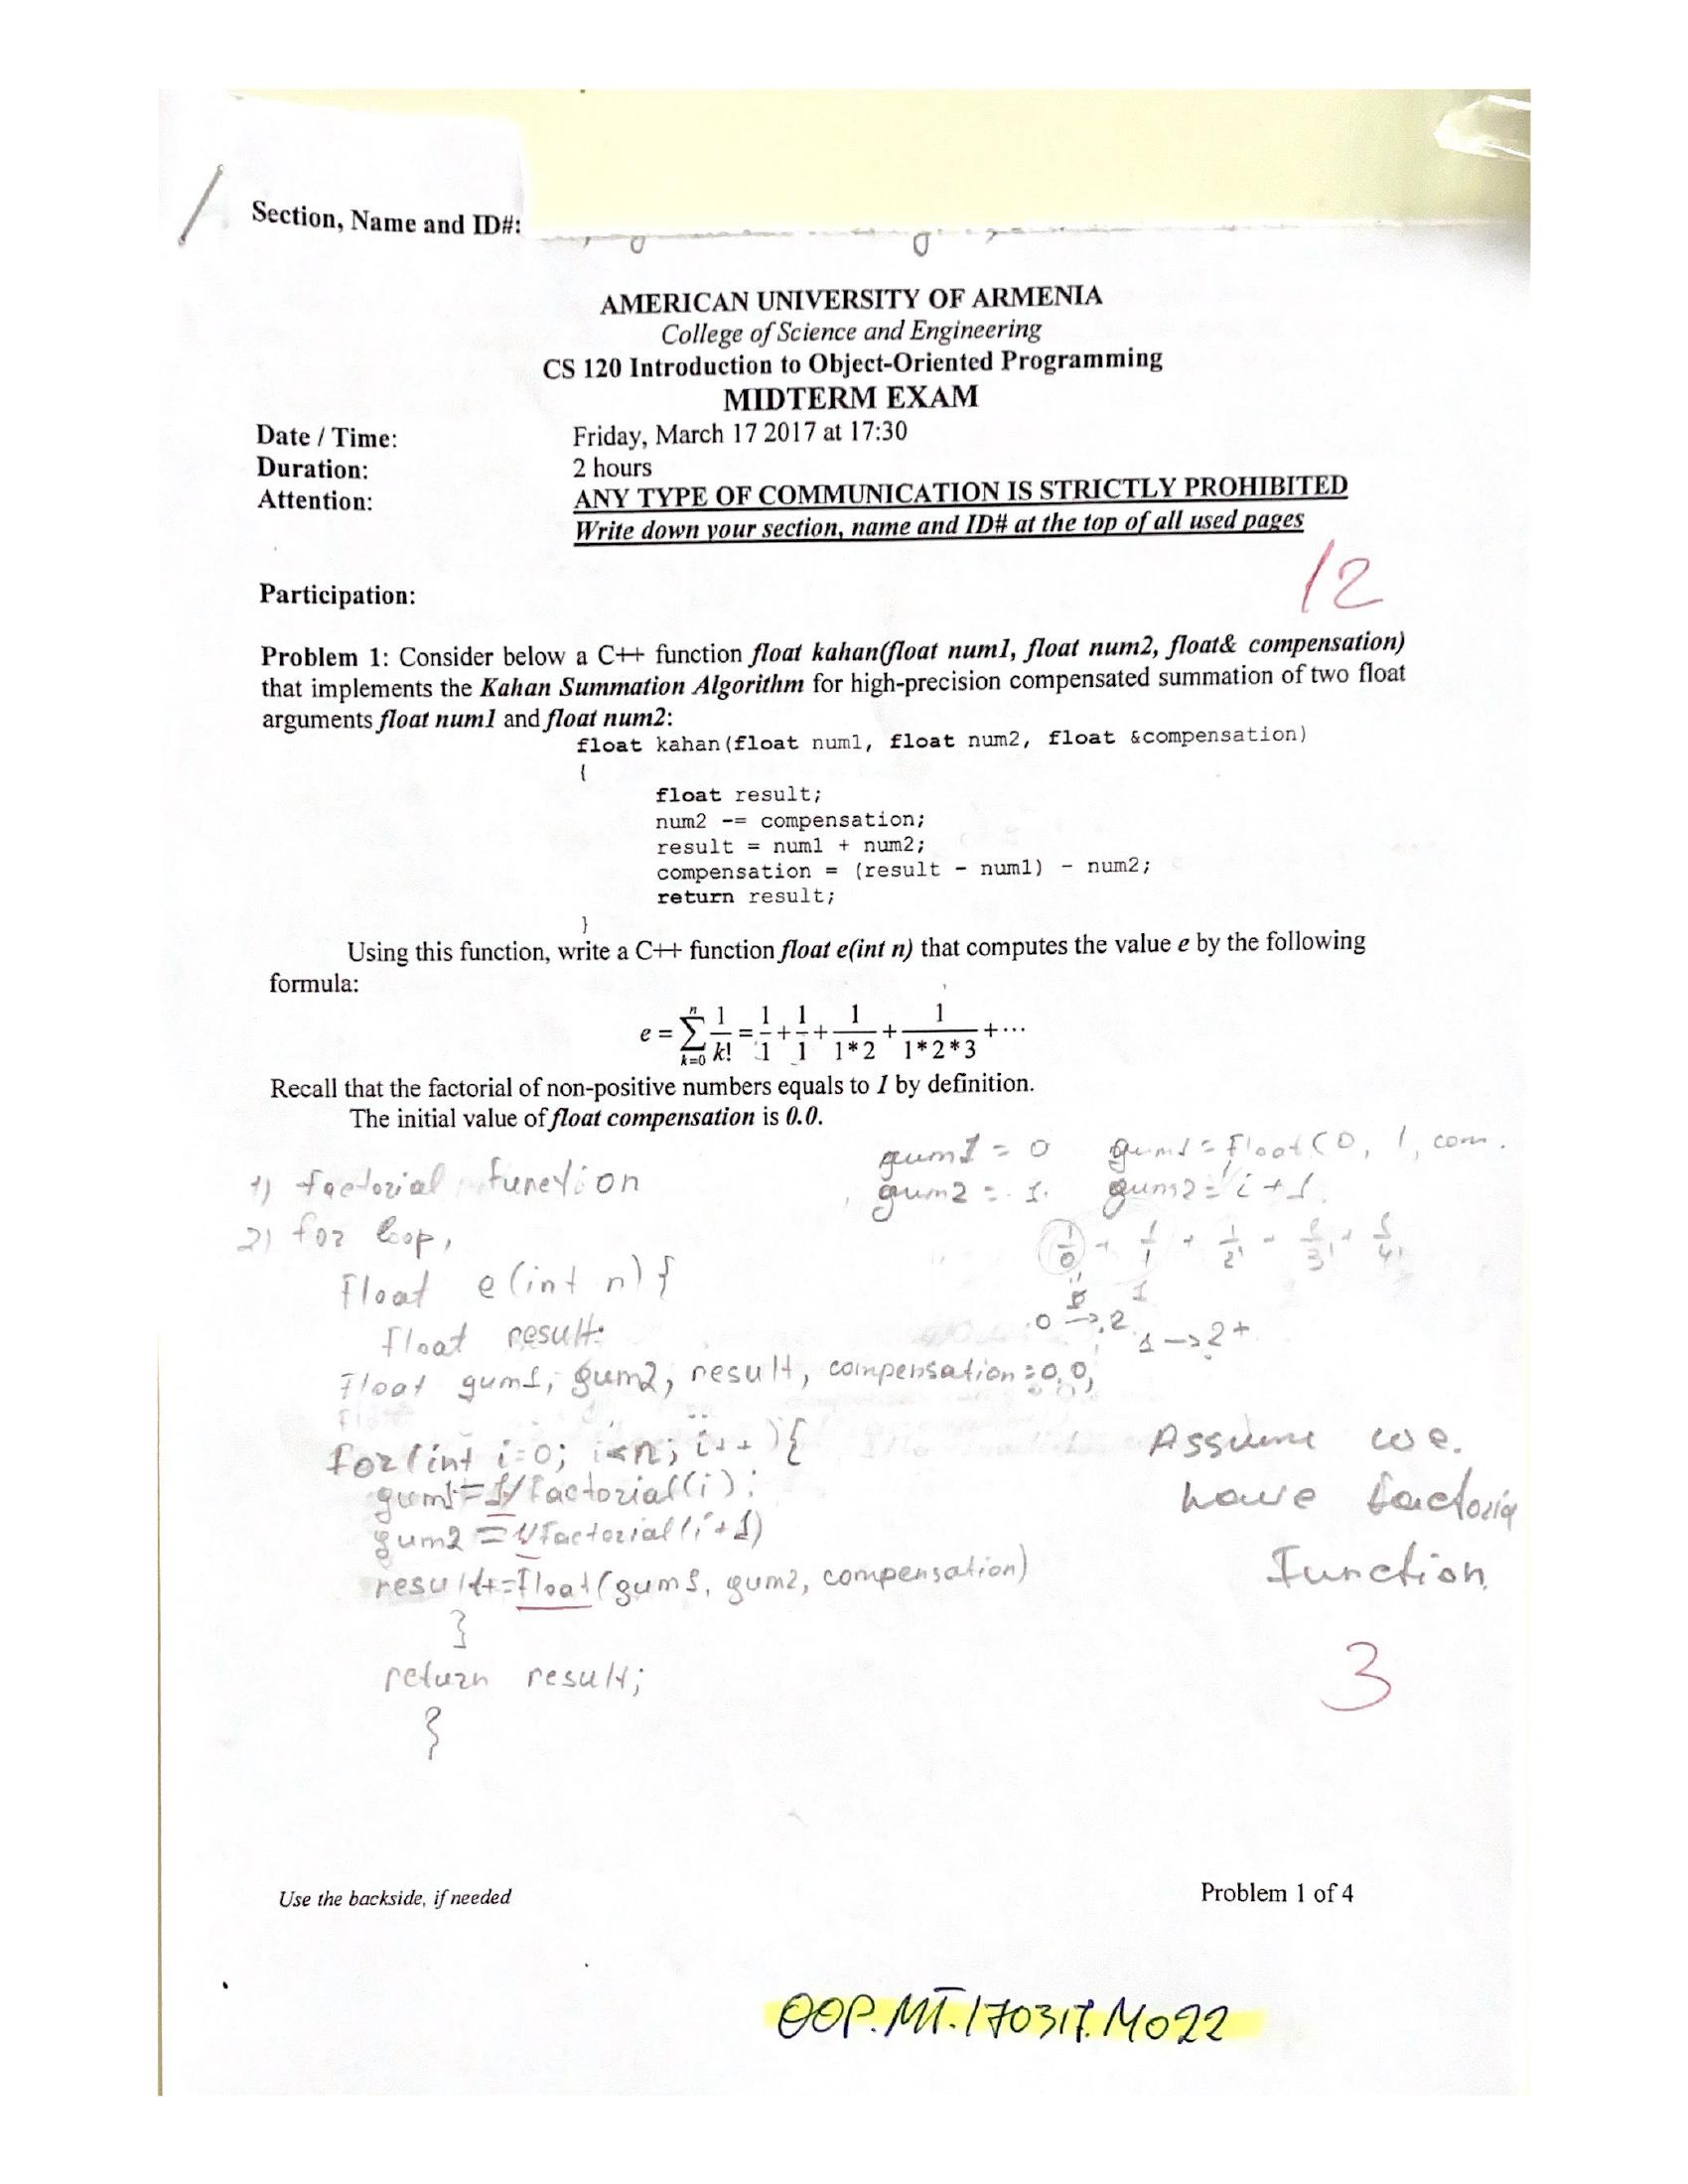 Section, Name and ID#:
AMERICAN UNIVERSITY OF ARMENIA
College of Science and Engineering
CS 120 Introduction to Object-Oriented Programming
MIDTERM EXAM
Date / Time: Friday, March 17 2017 at 17:30
Duration: 2 hours
Attention: ANY TYPE OF COMMUNICATION IS STRICTLY PROHIBITED
Write down your section, name and ID# at the top of all used pages
12
Participation:
Problem 1: Consider below a C++ function float kahan(float num1, float num2, float& compensation)
that implements the Kahan Summation Algorithm for high-precision compensated summation of two float
arguments float num1 and float num2:
float kahan(float num1, float num2, float &compensation)
{
float result;
num2 -= compensation;
result = num1 + num2;
compensation = (result - num1) - num2;
return result;
}
Using this function, write a C++ function float e(int n) that computes the value e by the following
formula:
e = ∑_{k=0}^{n} 1/k! = 1/1 + 1/1 + 1/(1*2) + 1/(1*2*3) + ···
Recall that the factorial of non-positive numbers equals to 1 by definition.
The initial value of float compensation is 0.0.
gum1 = 0 gum1 = float(0, 1, com.
1) factorial function
gum2 = 1. gum2 = i+1.
2) for loop,
float e(int n) {
float result;
0 → 2
1 → 2+
float gum1, gum2, result, compensation = 0,0,
for(int i=0; i<n; i++){
Assume we.
gum1 = 1/factorial(i);
have factoria
gum2 = 1/factorial(i+1)
result+=float(gum1, gum2, compensation)
function.
}
3
return result;
}
Use the backside, if needed
Problem 1 of 4
OOP.MT.170317.M022